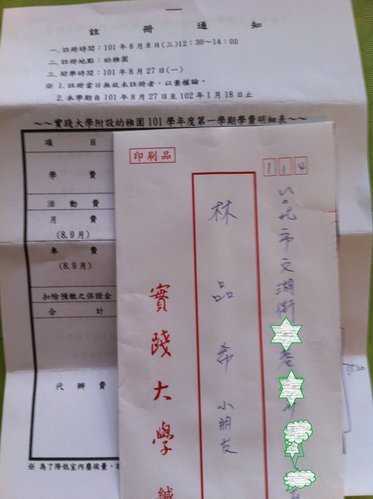 註冊通知
一.註冊時間：101年8月8日(三)12:30~14:00
二.註冊地點：幼稚園
三.開學時間：101年8月27日(一)
※1.註冊當日無故未註冊者，以棄權論。
2.本學期自101年8月27日至102年1月18日止
~~實踐大學附設幼稚園101學年度第一學期學費明細表~~
項目
學費
活動費
月費
(8.9月)
車費
(8.9月)
扣除預繳之保證金
合計
代辦費
※為了降低室內塵埃量，
印刷品
114
台北市文湖街
林品希 小朋友
實踐大學 緘